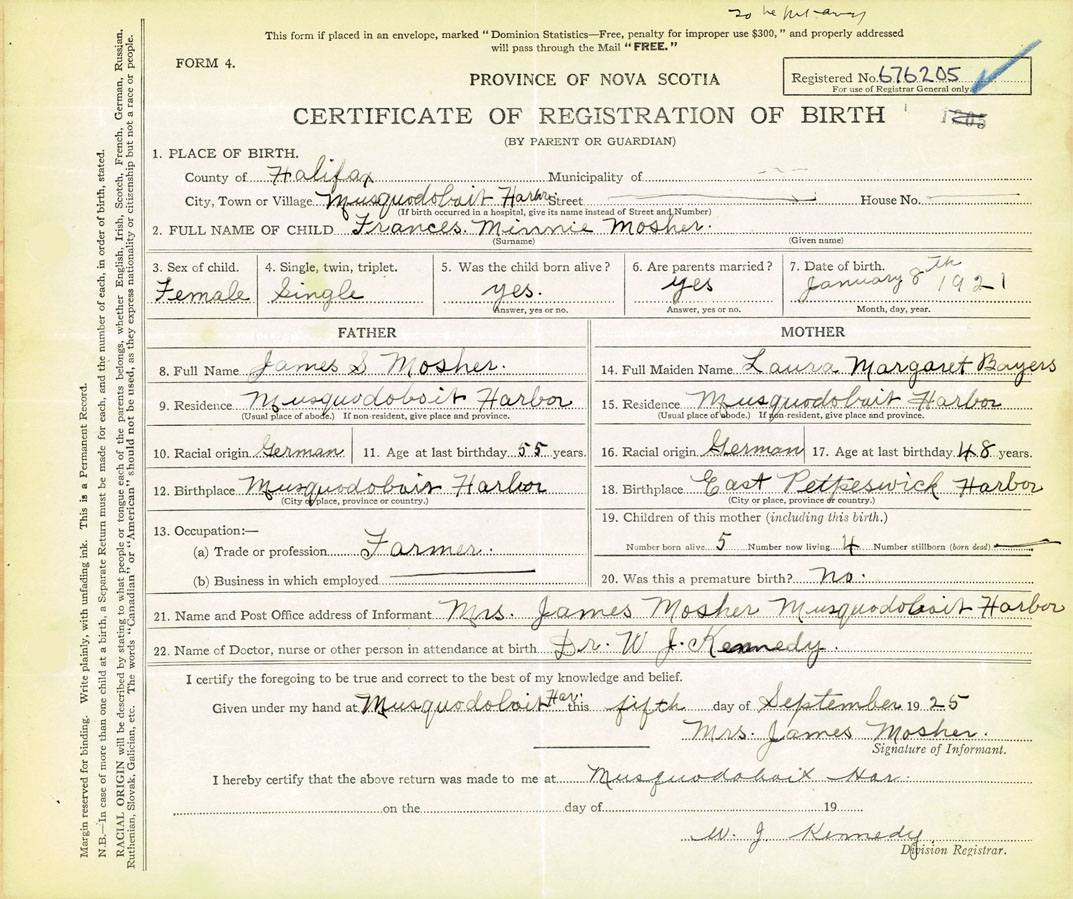 to be put away
This form if placed in an envelope, marked "Dominion Statistics—Free, penalty for improper use $300," and properly addressed
will pass through the Mail "FREE."
FORM 4.
PROVINCE OF NOVA SCOTIA
Registered No. 676205
For use of Registrar General only
CERTIFICATE OF REGISTRATION OF BIRTH
(BY PARENT OR GUARDIAN)
1. PLACE OF BIRTH.
County of Halifax Municipality of
City, Town or Village Musquodoboit Harbor Street House No.
(If birth occurred in a hospital, give its name instead of Street and Number)
2. FULL NAME OF CHILD Frances. Minnie Mosher.
(Surname) (Given name)
3. Sex of child. 4. Single, twin, triplet. 5. Was the child born alive? 6. Are parents married? 7. Date of birth.
Female Single yes. yes January 8th 1921
Answer, yes or no. Answer, yes or no. Month, day, year.
FATHER MOTHER
8. Full Name James S Mosher. 14. Full Maiden Name Laura Margaret Bayers
9. Residence Musquodoboit Harbor 15. Residence Musquodoboit Harbor
(Usual place of abode.) If non-resident, give place and province. (Usual place of abode.) If non-resident, give place and province.
10. Racial origin German 11. Age at last birthday 55 years. 16. Racial origin German 17. Age at last birthday 48 years.
12. Birthplace Musquodoboit Harbor 18. Birthplace East Petpeswick Harbor
(City or place, province or country.) (City or place, province or country.)
13. Occupation:— 19. Children of this mother (including this birth.)
(a) Trade or profession Farmer. Number born alive 5 Number now living 4 Number stillborn (born dead)
(b) Business in which employed 20. Was this a premature birth? no.
21. Name and Post Office address of Informant Mrs. James Mosher Musquodoboit Harbor
22. Name of Doctor, nurse or other person in attendance at birth Dr. W J. Kennedy.
I certify the foregoing to be true and correct to the best of my knowledge and belief.
Given under my hand at Musquodoboit Har. this fifth day of September 19 25
Mrs. James Mosher.
Signature of Informant.
I hereby certify that the above return was made to me at Musquodoboit Har.
on the day of 19
W. J Kennedy
Division Registrar.
Margin reserved for binding. Write plainly, with unfading ink. This is a Permanent Record.
N.B.—In case of more than one child at a birth, a Separate Return must be made for each, and the number of each, in order of birth, stated.
RACIAL ORIGIN will be described by stating to what people or tongue each of the parents belongs, whether English, Irish, Scotch, French, German, Russian,
Ruthenian, Slovak, Galician, etc. The words "Canadian" or "American" should not be used, as they express nationality or citizenship but not a race or people.